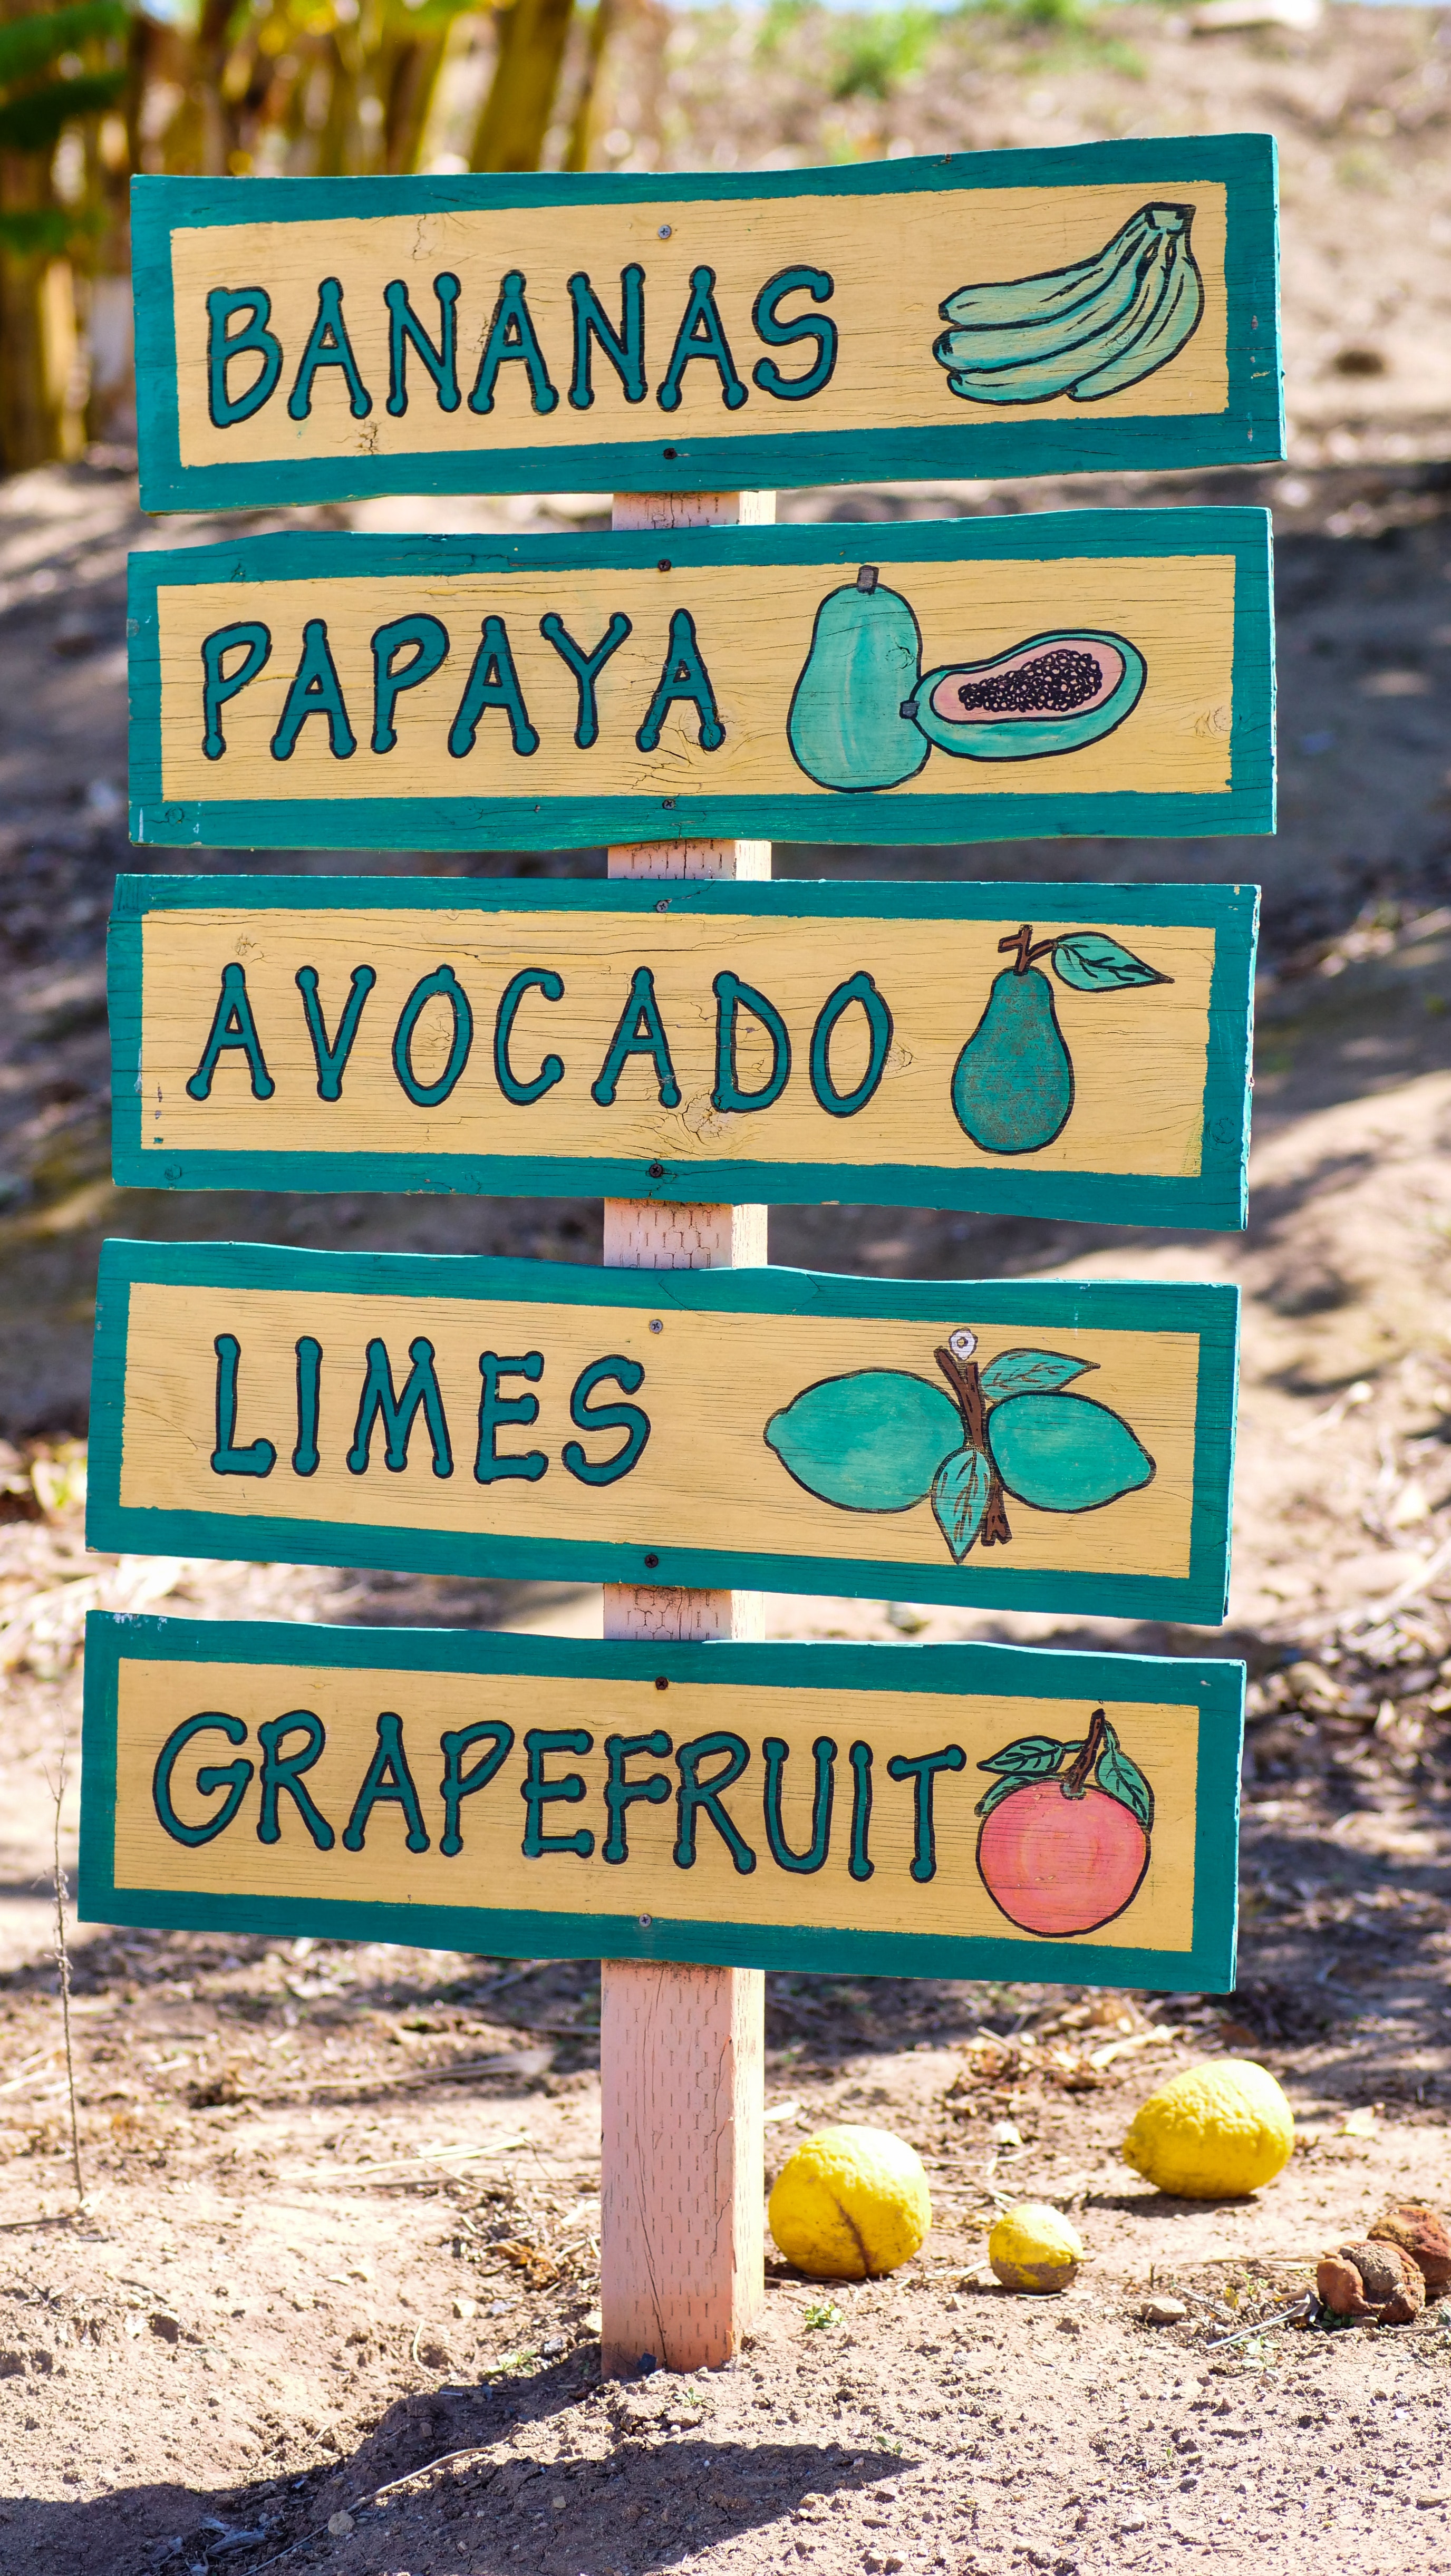 BANANAS
PAPAYA
AVOCADO
LIMES
GRAPEFRUIT